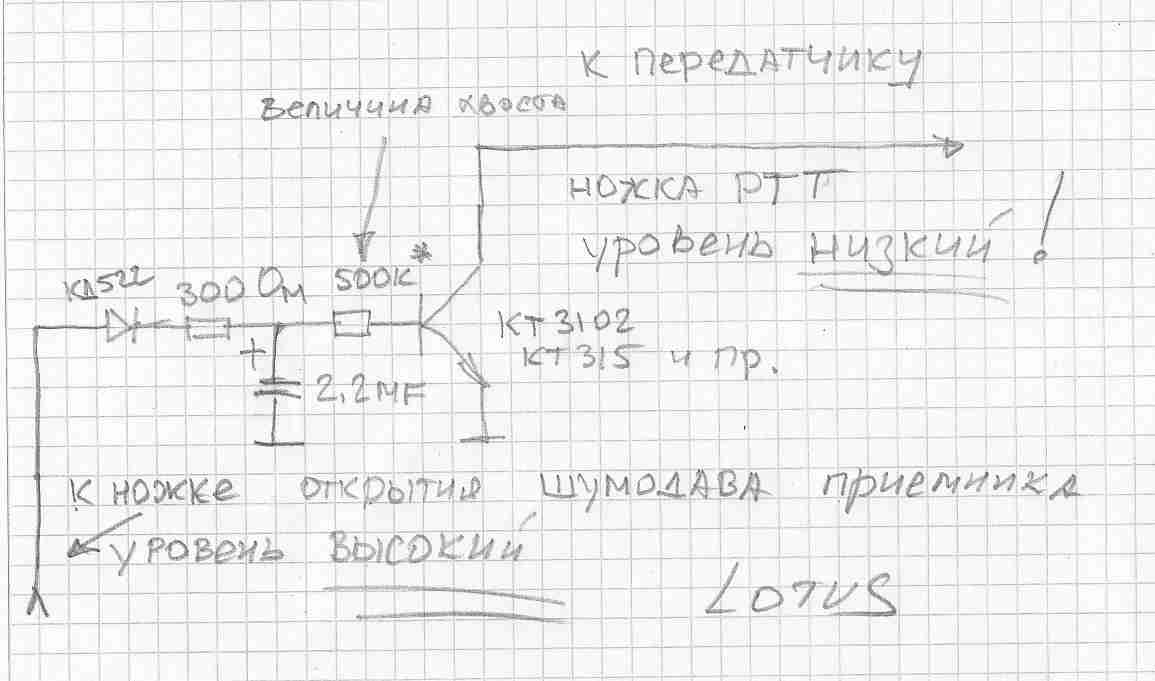 к передатчику
величина хвоста
ножка РТТ
уровень низкий !
КД522
300 Ом
500К*
КТ3102
КТ315 и пр.
+
2,2MF
к ножке открытия шумодава приемника
уровень высокий
LOTUS